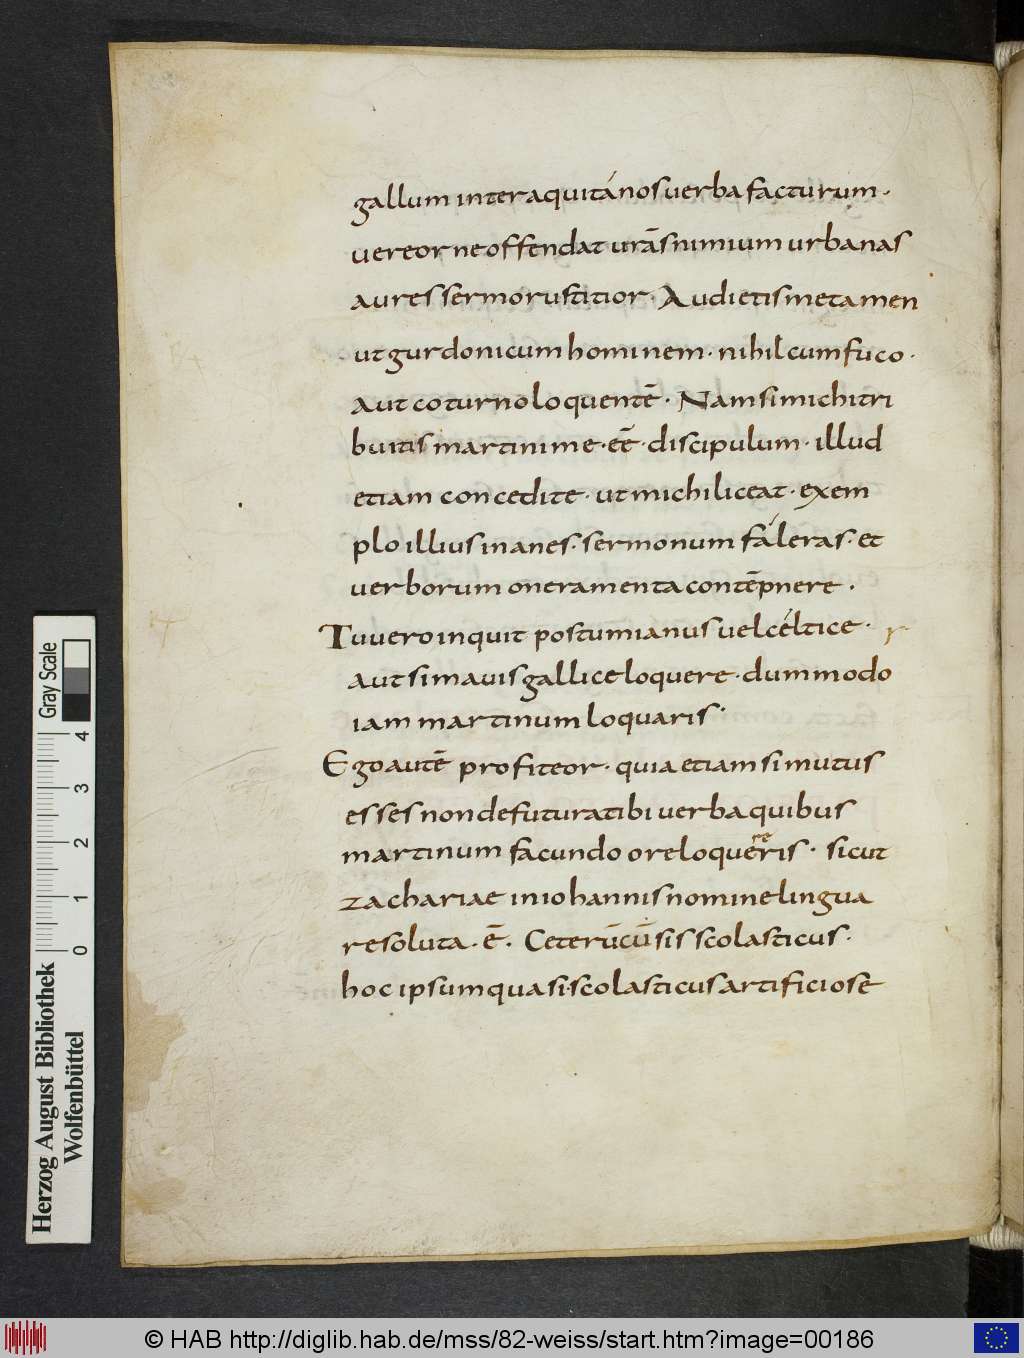 gallum inter aquitános verba facturum·
vereor ne offendat urās nimium urbanas
aures sermo rusticior· Audietis me tamen
ut gurdonicum hominem· nihil cum fuco·
aut coturno loquentē· Nam si michi tri
buitis martini me· eē· discipulum· illud
etiam concedite· ut michi liceat· exem
plo illius inanes· sermonum fáleras· et
verborum oneramenta contēpnere·
Tu vero inquit postumianus vel céltice· r
aut si mavis gallice loquere· dummodo
iam martinum loquaris·
Ego autē profiteor· quia etiam si mutus
esses non defutura tibi verba quibus
re
martinum facundo ore loqueris· sicut
zachariae in iohannis nomine lingua
resoluta· ē· Ceterū cū sis scolasticus·
hoc ipsum quasi scolasticus artificiose
Gray Scale
4
3
2
1
0
Herzog August Bibliothek
Wolfenbüttel
© HAB http://diglib.hab.de/mss/82-weiss/start.htm?image=00186